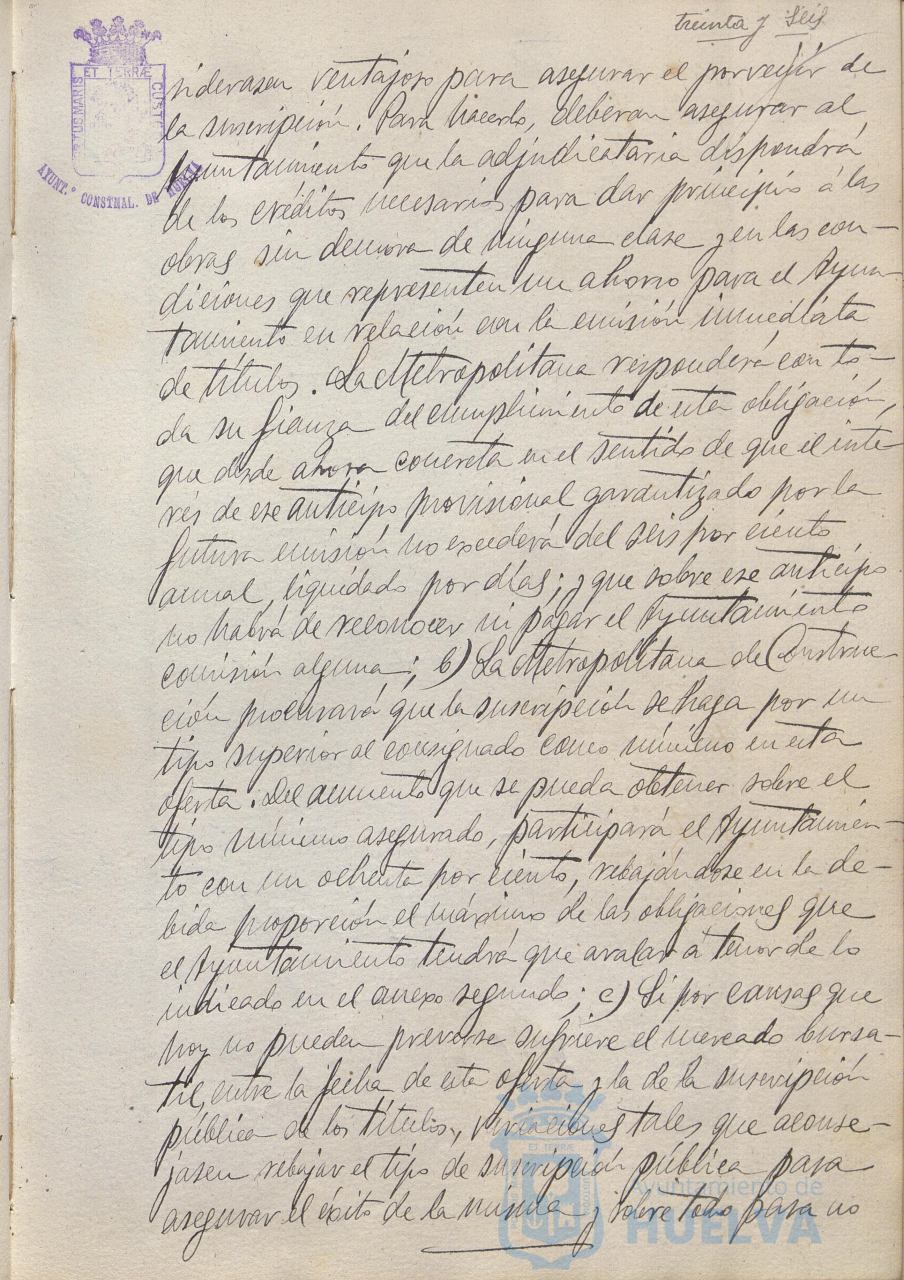 treinta y seis
ET TERRÆ
PORTUS MARIS
CUSTODIA
AYUNT.º CONSTNAL. DE HUELVA
siderasen ventajoso para asegurar el porvenir de
la suscripción. Para hacerlo, deberan asegurar al
Ayuntamiento que la adjudicataria dispondrá
de los créditos necesarios para dar principio á las
obras sin demora de ninguna clase y en las con-
diciones que representen un ahorro para el Ayun-
tamiento en relación con la emisión inmediata
de títulos. La Metropolitana responderá con to-
da su fianza del cumplimiento de esta obligación,
que desde ahora concreta en el sentido de que el inte-
rés de ese anticipo provisional garantizado por la
futura emisión no excederá del seis por ciento
anual, liquidado por días; y que sobre ese anticipo
no habrá de reconocer ni pagar el Ayuntamiento
comisión alguna; b) La Metropolitana de Construc-
ción procurará que la suscripción se haga por un
tipo superior al consignado como mínimo en esta
oferta. Del aumento que se pueda obtener sobre el
tipo mínimo asegurado, participará el Ayuntamien-
to con un ochenta por ciento, rebajándose en la de-
bida proporción el máximo de las obligaciones que
el Ayuntamiento tendrá que avalar á tenor de lo
indicado en el anexo segundo; c) Si por causas que
hoy no pueden preverse sufriere el mercado bursa-
til, entre la fecha de esta oferta y la de la suscripción
pública de los títulos, variaciones tales que aconse-
jasen rebajar el tipo de suscripción pública para
asegurar el éxito de la misma y sobre todo para no
Ayuntamiento de
HUELVA